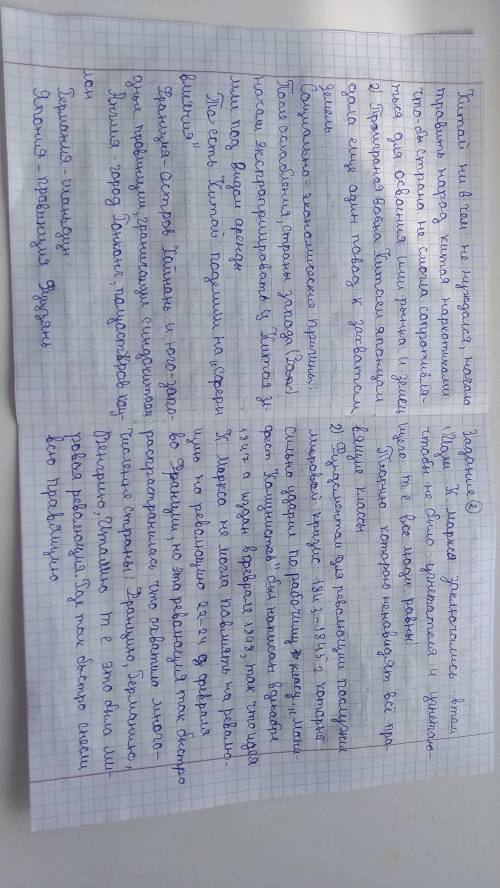 Китай ни в чем не нуждался, начала
травить народ китая наркотиками
что-бы страна не смогла сопротивля-
ться для освоения ими рынка и земец
2) Проиграная война Китаем японцам
дала еще один повод к захватам
земель
Социально-экономические причины:
После ослабления, страны запада (Запад)
начали экспроприировать у Китая зе-
мли под видом аренды
То есть Китай поделили на "сферы
влияния"
Франция - остров Хайнань и юго-запа-
дные провинции, граничащие с индокитаем
Англия - город Гонконг, полуостров коу-
лон
Германия - шаньдун
Япония - провинция Фуцзянь
Задание 2
1) Идеи К Маркса заключались в том
чтобы не было угнетателя и угнетаю-
щего т е все люди равны
Теорию которою ненавидят все пра-
вящие классы
2) Фундаментом для революции послужил
мировой кризис 1847-1845 г который
сильно ударил по рабочему классу, "Мани-
фест Комунистов" был написан в декабре
1847 а издан в феврале 1848, так что идея
К Маркса не могла повлиять на револю-
цию но революцию 22-24 февраля
во Франции, но эта революция так быстро
распространилась что охватило много-
численые страны: Францию, Германию,
Венгрию, Италию т е это была ми-
ровая революция. Где так быстро снесли
всю правящию